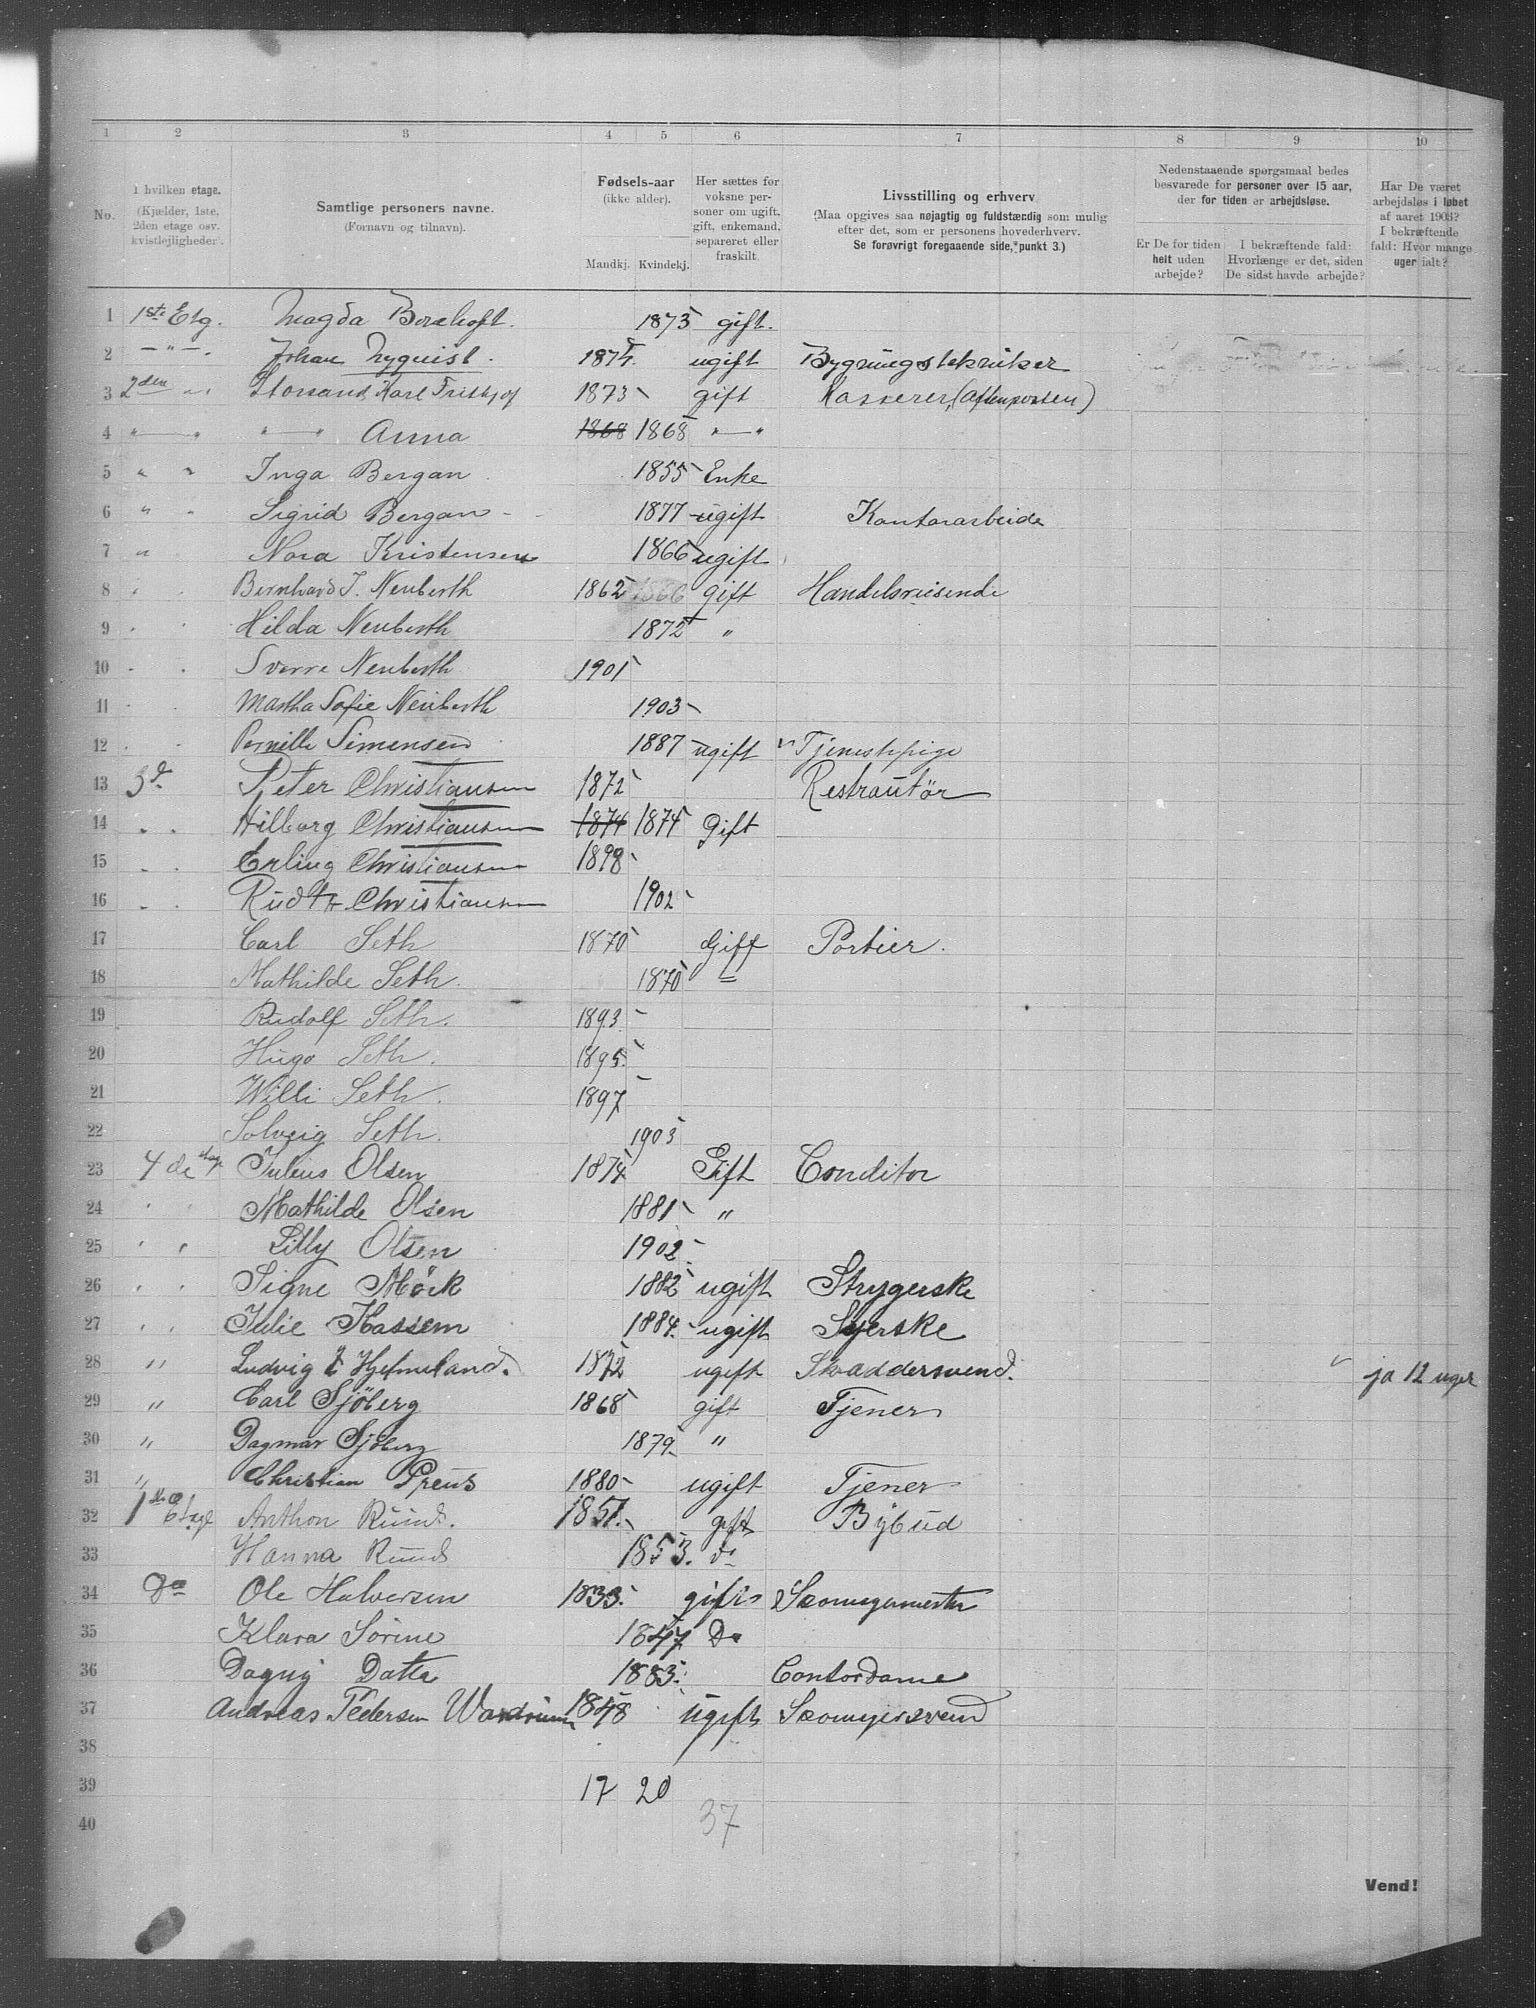 1 2 3 4 5 6 7 8 9 10
No.
I hvilken etage. (Kjælder, 1ste, 2den etage osv. kvistlejligheder).
Samtlige personers navne. (Fornavn og tilnavn).
Fødsels-aar (ikke alder). Mandkj. Kvindekj.
Her sættes for voksne personer om ugift, gift, enkemand, separeret eller fraskilt.
Livsstilling og erhverv (Maa opgives saa nøjagtig og fuldstændig som mulig efter det, som er personens hovederhverv. Se forøvrigt foregaaende side, punkt 3.)
Nedenstaaende spørgsmaal bedes besvarede for personer over 15 aar, der for tiden er arbejdsløse.
Er De for tiden helt uden arbejde?
I bekræftende fald: Hvorlænge er det, siden De sidst havde arbejde?
Har De været arbejdsløs i løbet af aaret 1903? I bekræftende fald: Hvor mange uger ialt?
1 1ste Etg. Magda Borchoft. 1873 gift.
2 — " — Johan Nyquist. 1874 ugift Bygningstekniker
3 2den " Storsand, Karl Frithjof 1873 gift Kasserer, (Aftenposten)
4 " — " " — " Anna 1868 1868 " — "
5 " " Inga Bergan 1855 Enke
6 " " Sigrid Bergan 1877 ugift Kontorarbeide
7 " Nora Kristensen 1866 ugift
8 " Bernhard J. Neuberth 1862 1866 gift Handelsreisende
9 " " Hilda Neuberth 1872 "
10 " " Sverre Neuberth 1901
11 " Martha Sofie Neuberth 1903
12 " " Pernille Simensen 1887 ugift Tjenestepige
13 3d Peter Christiansen 1872 Restrautør
14 " " Hilborg Christiansen 1874 1874 Gift
15 " " Erling Christiansen 1898
16 " " Rudth Christiansen 1902
17 Carl Seth 1870 Gift Portier.
18 Mathilde Seth. 1870 =
19 Rudolf Seth. 1893
20 Hugo Seth. 1895.
21 Willi Seth. 1897
22 Solveig Seth. 1903
23 4de etage Julius Olsen 1874 Gift Conditor
24 " " Mathilde Olsen 1881 "
25 " " Lilly Olsen 1902
26 " " Signe Mörk 1882 ugift Strygerske
27 " " Julie Hassem 1884. ugift Syerske
28 " Ludvig Hjelmeland. 1872 ugift Skraddersvend. ja 12 uger
29 " Carl Sjöberg 1868 gift Tjener
30 " Dagmar Sjöberg 1879. "
31 " Christian Preus 1880 ugift Tjener
32 1ste Etage Anthon Ruud. 1851. gift Bybud
33 Hanna Ruud 1853. do
34 Do Ole Halversen 1833. gift Skomagermester
35 Klara Sörine 1847 Do
36 Dagny Datter 1883. Contordame
37 Andreas Pedersen 1848 Ugift Skomagersvend
38
39 17 20
40 37
Vend!